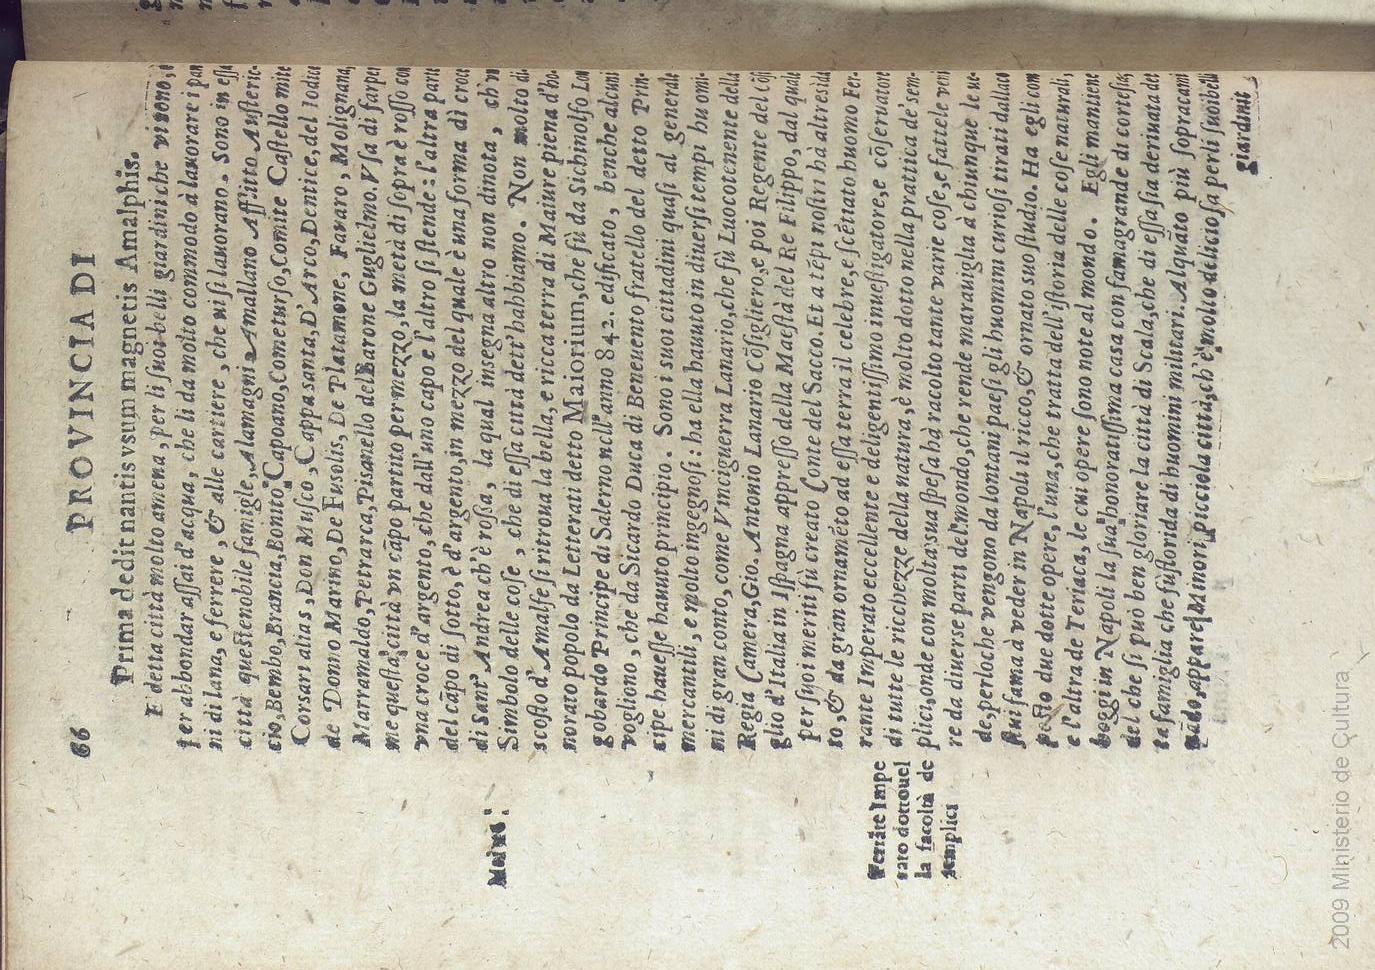 66 PROVINCIA DI
Prima dedit nantis vsum magnetis Amalphis.
E detta città molto amena, per li suoi belli giardini che vi sono,
per abbondar assai d'acqua, che li da molto commodo à lauorare i
ni di lana, e ferrere, & alle cartiere, che ui si lauorano. Sono in
città queste nobile famigle, Alamagni, Amallano Afflitto, Austeric-
cio, Bembo, Brancia, Bonito, Capoano, Comeïurso, Comite Castello mite
Corsari alias, Don Musco, Cappasanta, D'Arco, Dentice, del Iodice
de Donno Marino, De Fusolis, De Platamone, Favaro, Molignana,
Marramaldo, Petrarca, Pisanello del Barone Guglielmo. Vsa di
me questa città vn cãpo partito per mezzo, la metà di sopra è rosso con
vna croce d'argento, che dall'uno capo e l'altro si stende: l'altra parte
del cãpo di sotto, è d'argento, in mezzo del quale è una forma di croce
di Sant'Andrea ch'è rossa, la qual insegna altro non dinota, ch'n
Simbolo delle cose, che di essa città dett'habbiamo. Non molto di-
scosto d'Amalfe si ritroua la bella, e ricca terra di Maiure piena d'ho-
norato popolo da Letterati detto Maiorium, che fù da Sichinolfo Lon
gobardo Principe di Salerno nell'anno 842. edificato, benche alcuni
vogliono, che da Sicardo Duca di Beneuento fratello del detto Prin-
cipe hauesse hauuto principio. Sono i suoi cittadini quasi al generale
mercantili, e molto ingegnosi: ha ella hauuto in diuersi tempi huomi-
ni di gran conto, come Vinciguerra Lanario, che fù Luocotenente della
Regia Camera, Gio. Antonio Lanario Cõsigliero, e poi Regente del
glio d'Italia in Ispagna appresso della Maestà del Re Filippo, dal quale
per suoi meriti fù creato Conte del Sacco. Et a tẽpi nostri hà altresì
to, & da gran ornamẽto ad essa terra il celebre, e scẽtiato huomo Fer-
rante Imperato eccellente e deligentissimo inuestigatore, e cõseruatore
di tutte le ricchezze della natura, è molto dotto nella prattica de sem-
plici, onde con molta sua spesa hà racolto tante varie cose, e fattele veni
re da diuerse parti del mondo, che rende marauiglia à chiunque le ue-
de, perloche vengono da lontani paesi gli huomini curiosi tirati dalla
sui fama à veder in Napoli il ricco, & ornato suo studio. Ha egli com
posto due dotte opere, l'una, che tratta dell'istoria delle cose naturali,
e l'altra de Teriaca, le cui opere sono note al mondo. Egli mantiene
hoggi in Napoli la sua honoratissima casa con fama grande di cortesia,
del che si può ben gloriare la città di Scala, che di essa sia deriuata det
ta famiglia che fù florida di huomini militari. Alquãto più sopra cami
nãdo, appare Minori, picciola città, ch'è molto deliciosa per li suoi belli
giardini
Maiure.
Ferrãte Impe
rato dotto uel
la facoltà de
semplici
2009 Ministerio de Cultura